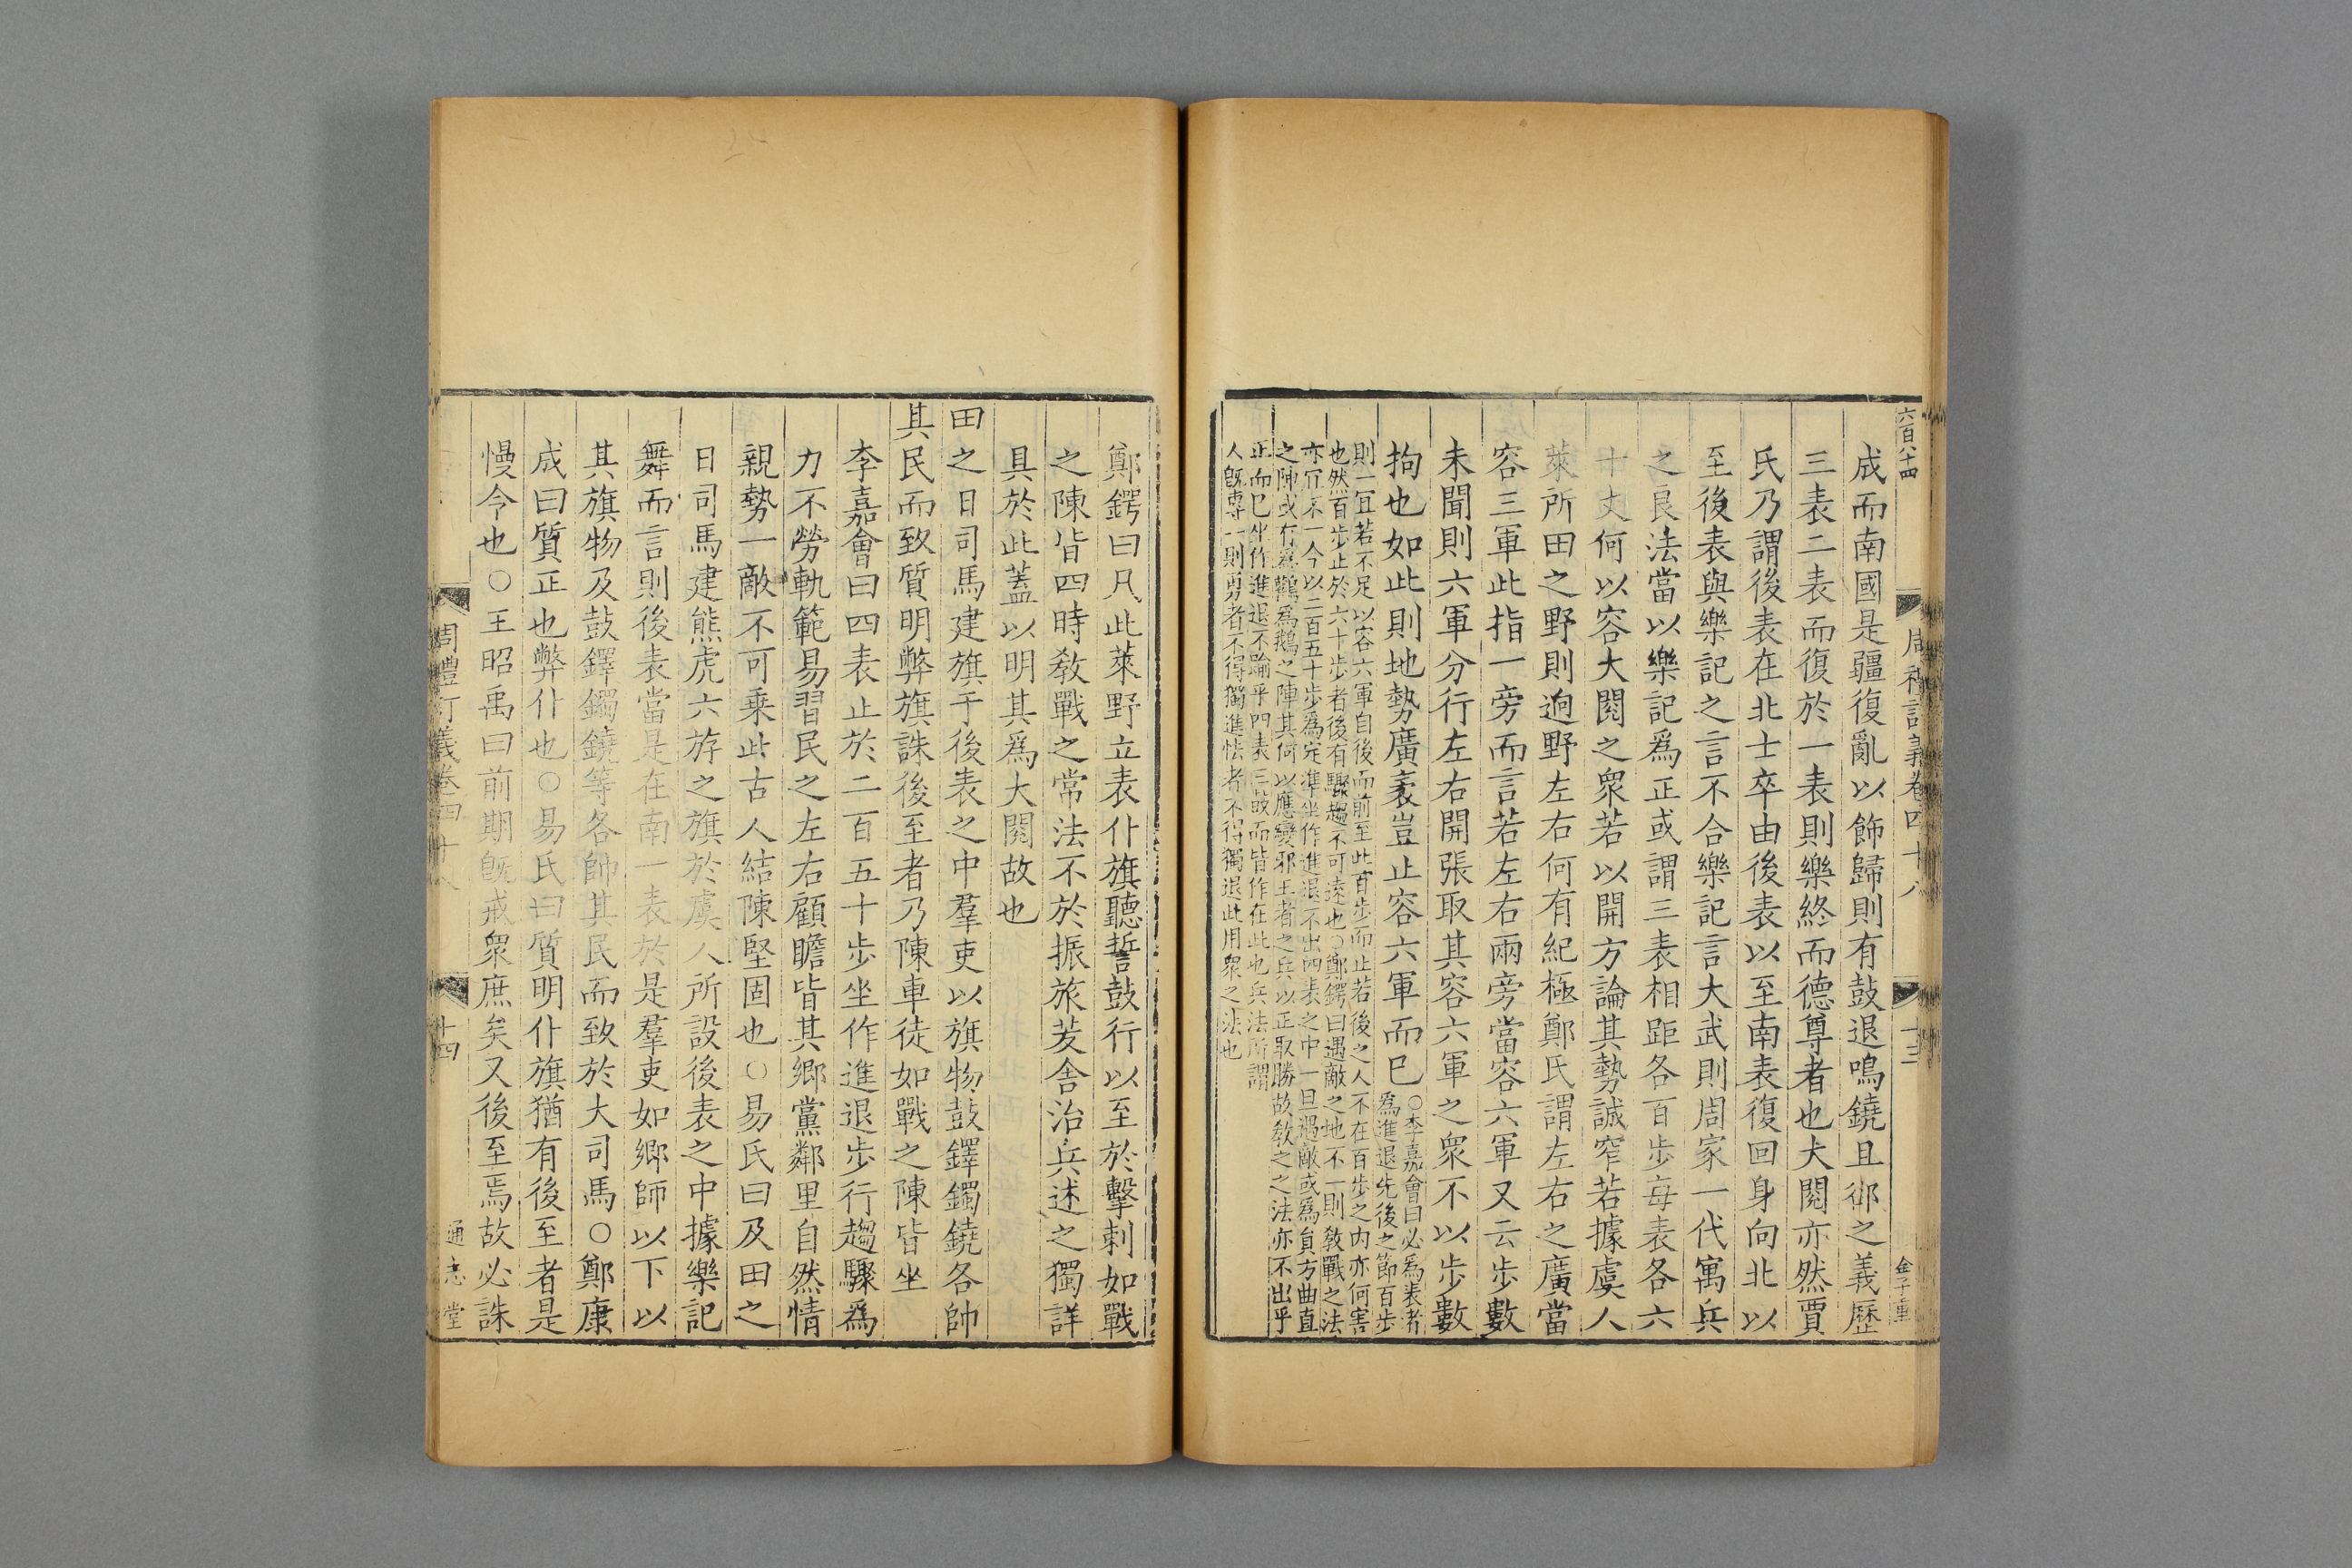 六百八十四
周禮訂義卷四十八
十三
金子重
成而南國是疆復亂以飾歸則有鼓退鳴鐃且郤之義歷
三表二表而復於一表則樂終而德尊者也大閱亦然賈
氏乃謂後表在北士卒由後表以至南表復回身向北以
至後表與樂記之言不合樂記言大武則周家一代寓兵
之良法當以樂記爲正或謂三表相距各百步每表各六
十丈何以容大閱之衆若以開方論其勢誠窄若據虞人
萊所田之野則逈野左右何有紀極鄭氏謂左右之廣當
容三軍此指一旁而言若左右兩旁當容六軍又云步數
未聞則六軍分行左右開張取其容六軍之衆不以步數
拘也如此則地勢廣袤豈止容六軍而巳
○李嘉會曰必爲表者
爲進退先後之節百步
則一冝若不足以容六軍自後而前至此百步而止若後之人不在百步之内亦何害
也然百步止於六十步者後有驟趨不可遠也○鄭鍔曰遇敵之地不一則敎戰之法
亦冝不一今以二百五十步爲定準坐作進退不出四表之中一旦遇敵或爲負方曲直
之陣或有爲鸛爲鵝之陣其何以應變邪王者之兵以正取勝故敎之之法亦不出乎
正而巳坐作進退不踰乎四表三鼓而皆作在此也兵法所謂
人旣專一則勇者不得獨進怯者不得獨退此用衆之法也
鄭鍔曰凡此萊野立表仆旗聽誓鼓行以至於擊刺如戰
之陳皆四時敎戰之常法不於振旅茇舍治兵述之獨詳
具於此蓋以明其爲大閱故也
田之日司馬建旗于後表之中羣吏以旗物鼓鐸鐲鐃各帥
其民而致質明弊旗誅後至者乃陳車徒如戰之陳皆坐
李嘉會曰四表止於二百五十步坐作進退步行趨驟爲
力不勞軌範易習民之左右顧瞻皆其鄉黨鄰里自然情
親勢一敵不可乗此古人結陳堅固也○易氏曰及田之
日司馬建熊虎六斿之旗於虞人所設後表之中據樂記
舞而言則後表當是在南一表於是羣吏如鄉師以下以
其旗物及鼓鐸鐲鐃等各帥其民而致於大司馬○鄭康
成曰質正也弊仆也○易氏曰質明仆旗猶有後至者是
慢令也○王昭禹曰前期旣戒衆庶矣又後至焉故必誅
周禮訂義卷四十八
十四
通志堂